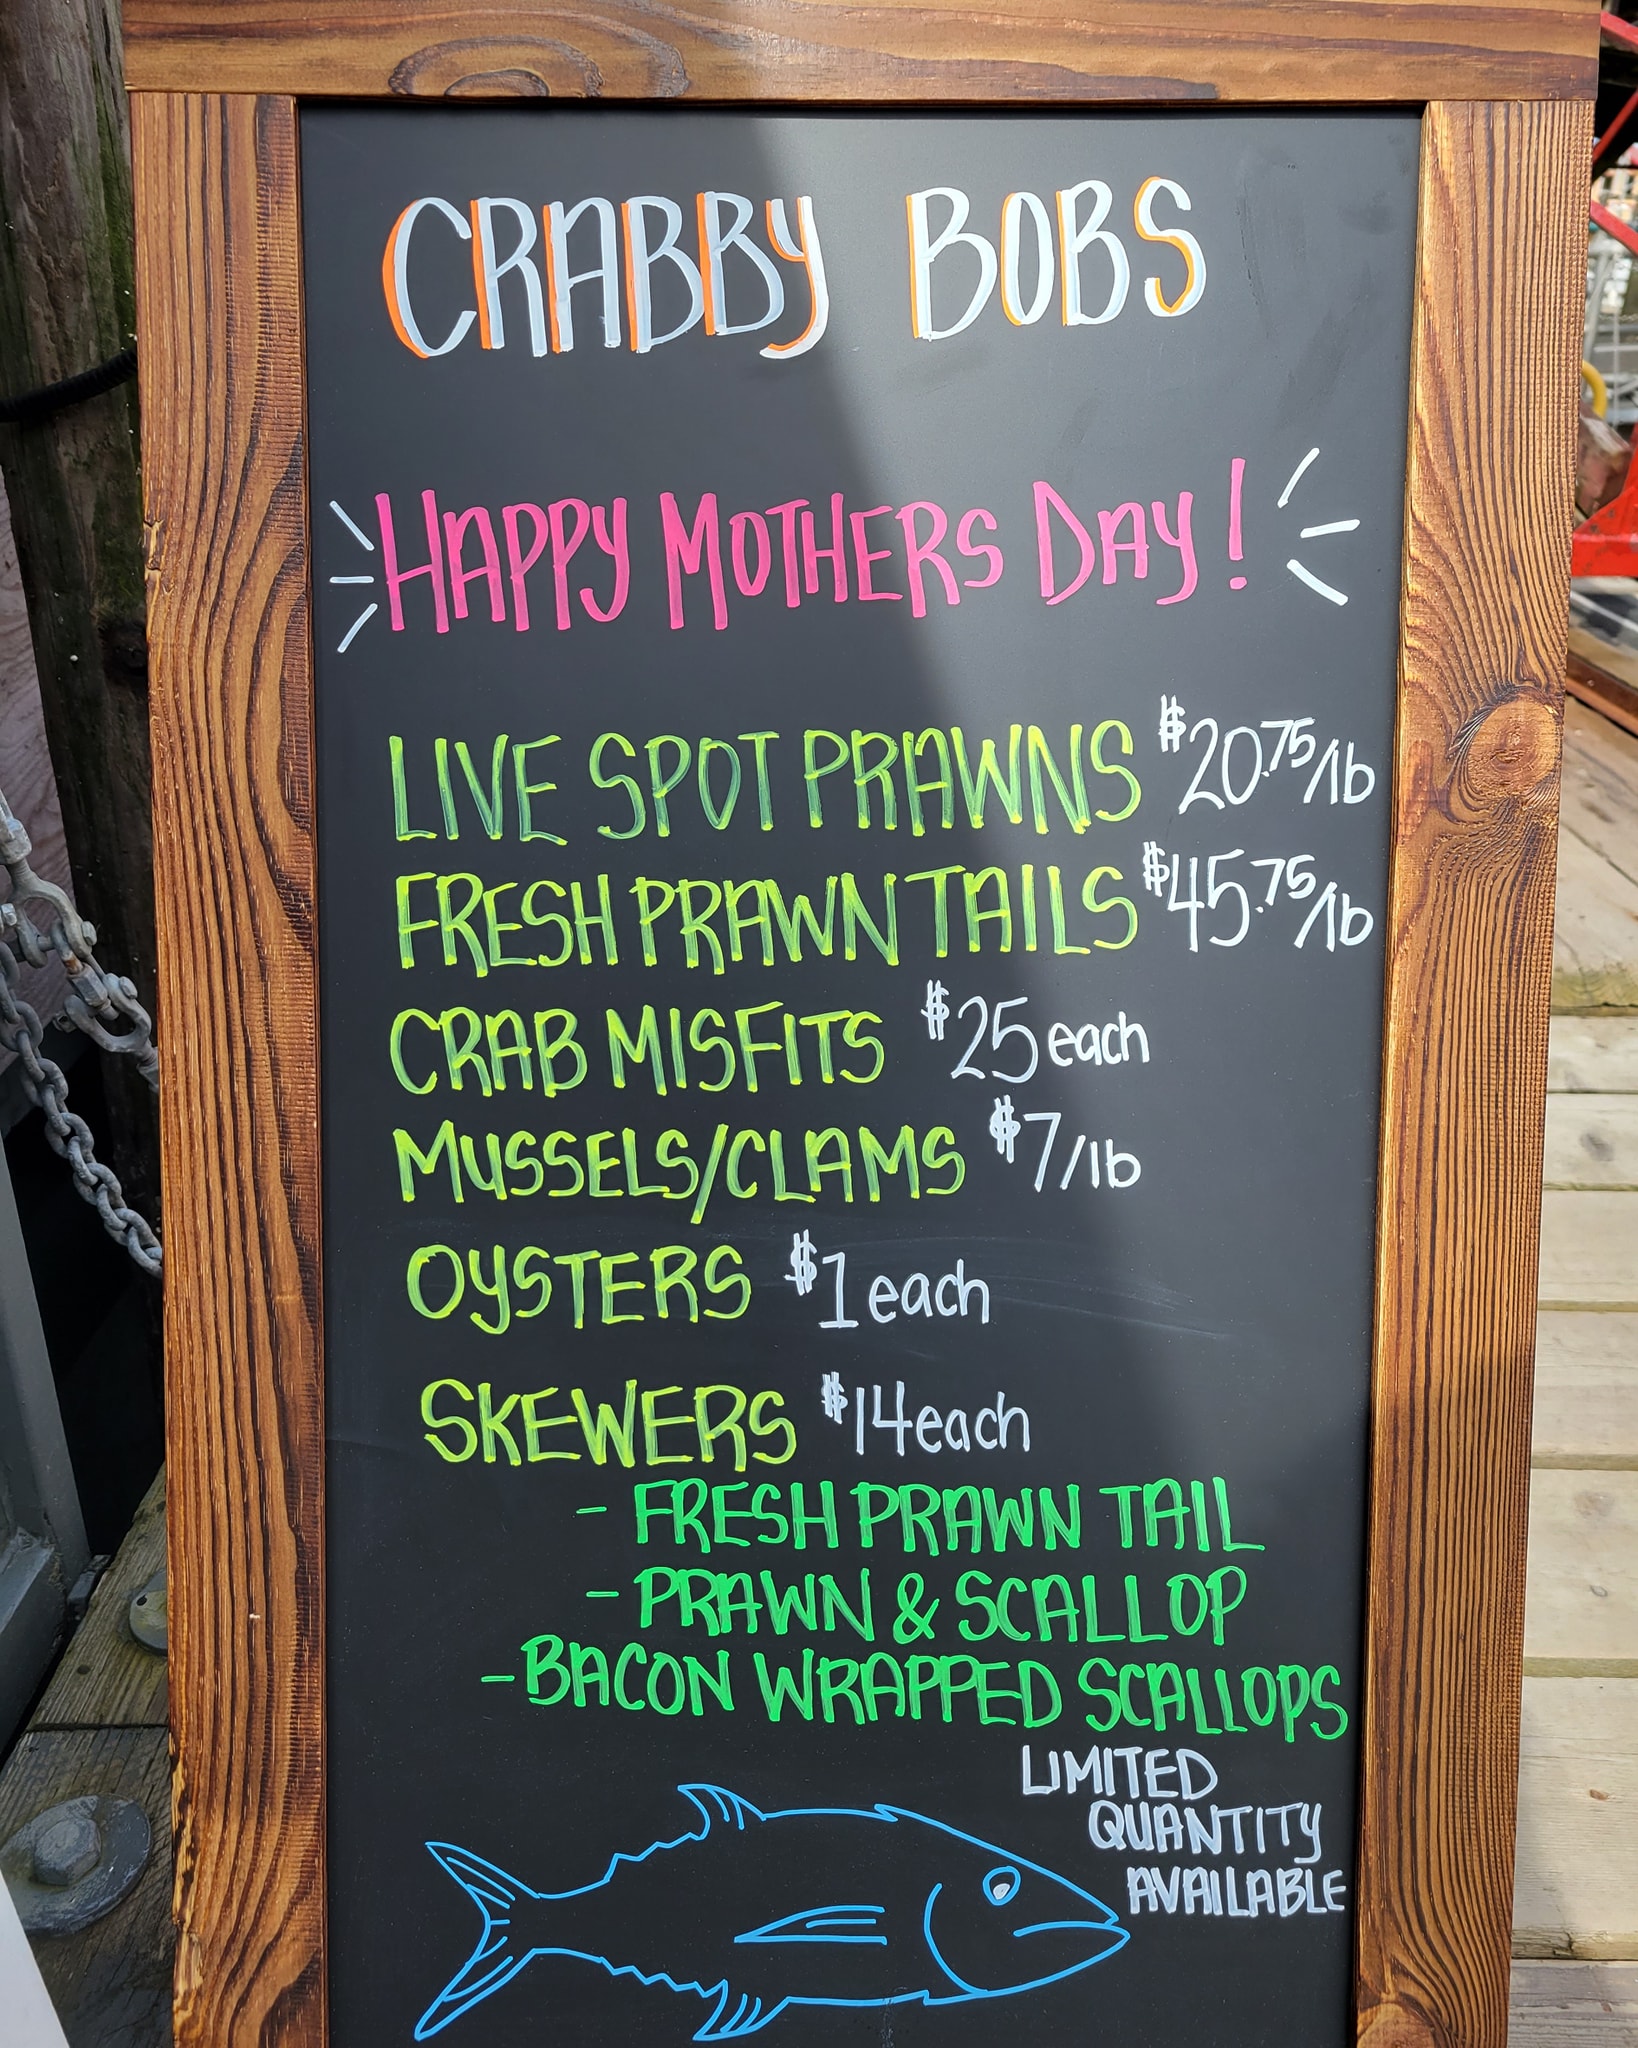 CRABBY BOBS
HAPPY MOTHERS DAY!
LIVE SPOT PRAWNS $20.75/lb
FRESH PRAWN TAILS $45.75/lb
CRAB MISFITS $25 each
MUSSELS/CLAMS $7/lb
OYSTERS $1 each
SKEWERS $14 each
- FRESH PRAWN TAIL
- PRAWN & SCALLOP
- BACON WRAPPED SCALLOPS
LIMITED
QUANTITY
AVAILABLE